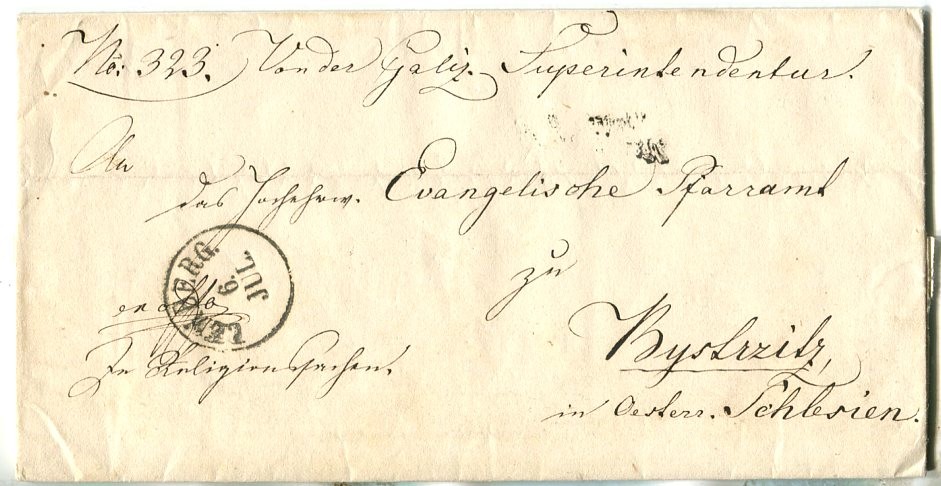 No: 323. Von der Galiz. Superintendentur.
An
das Hochehrw. Evangelische Pfarramt
zu
LEMBERG.
6. JUL.
ex offo
Bystrzitz,
In Religionssachen.
in Oesterr. Schlesien.